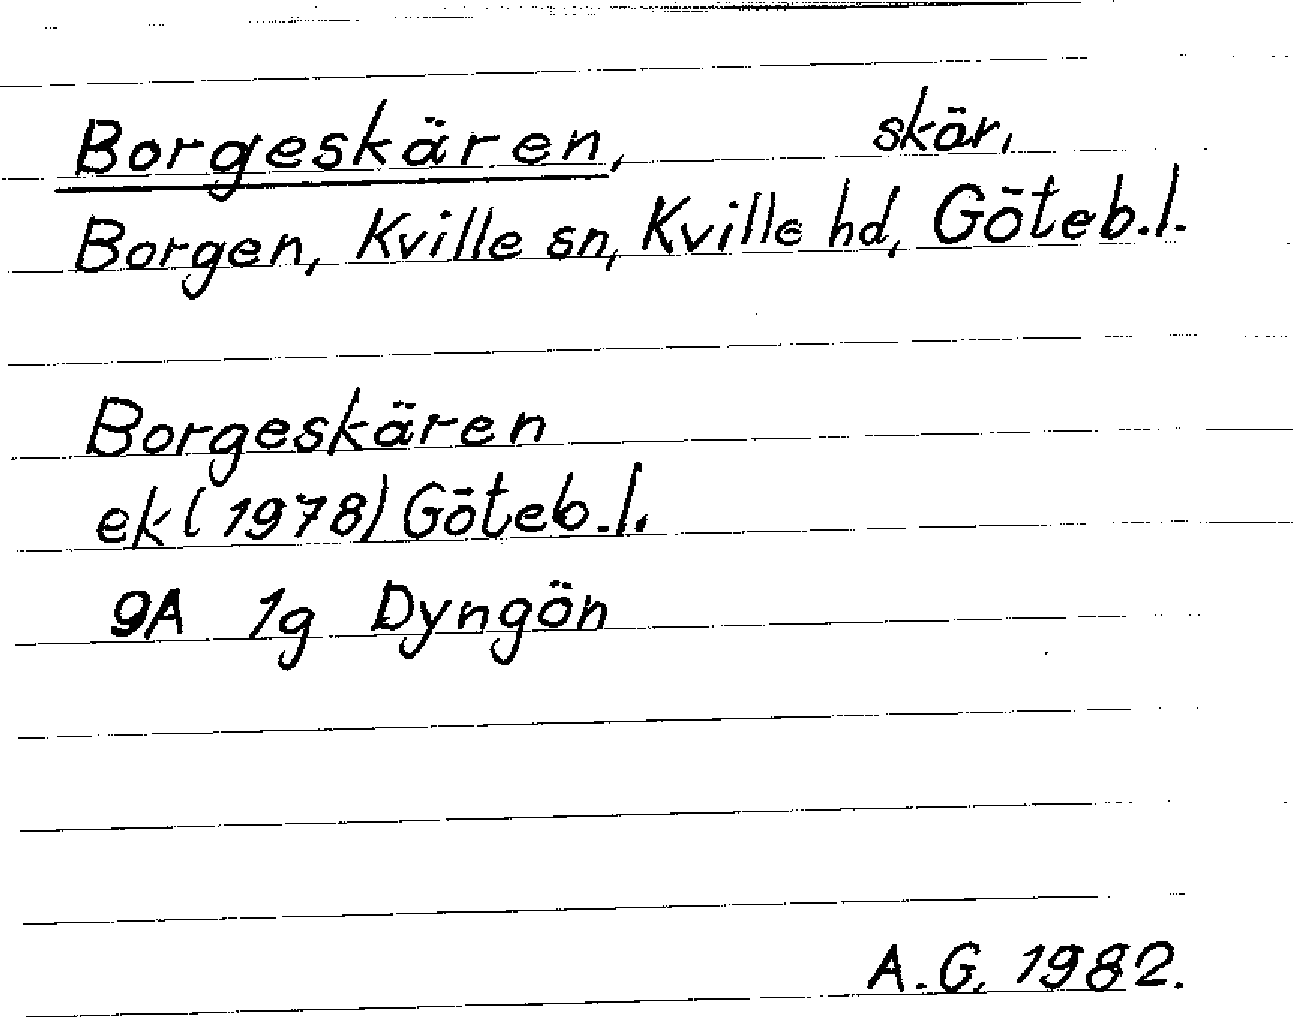 Borgeskären, skär,
Borgen, Kville sn, Kville hd, Göteb.l.
Borgeskären
ek (1978) Göteb.l.
9A 1g Dyngön
A.G. 1982.